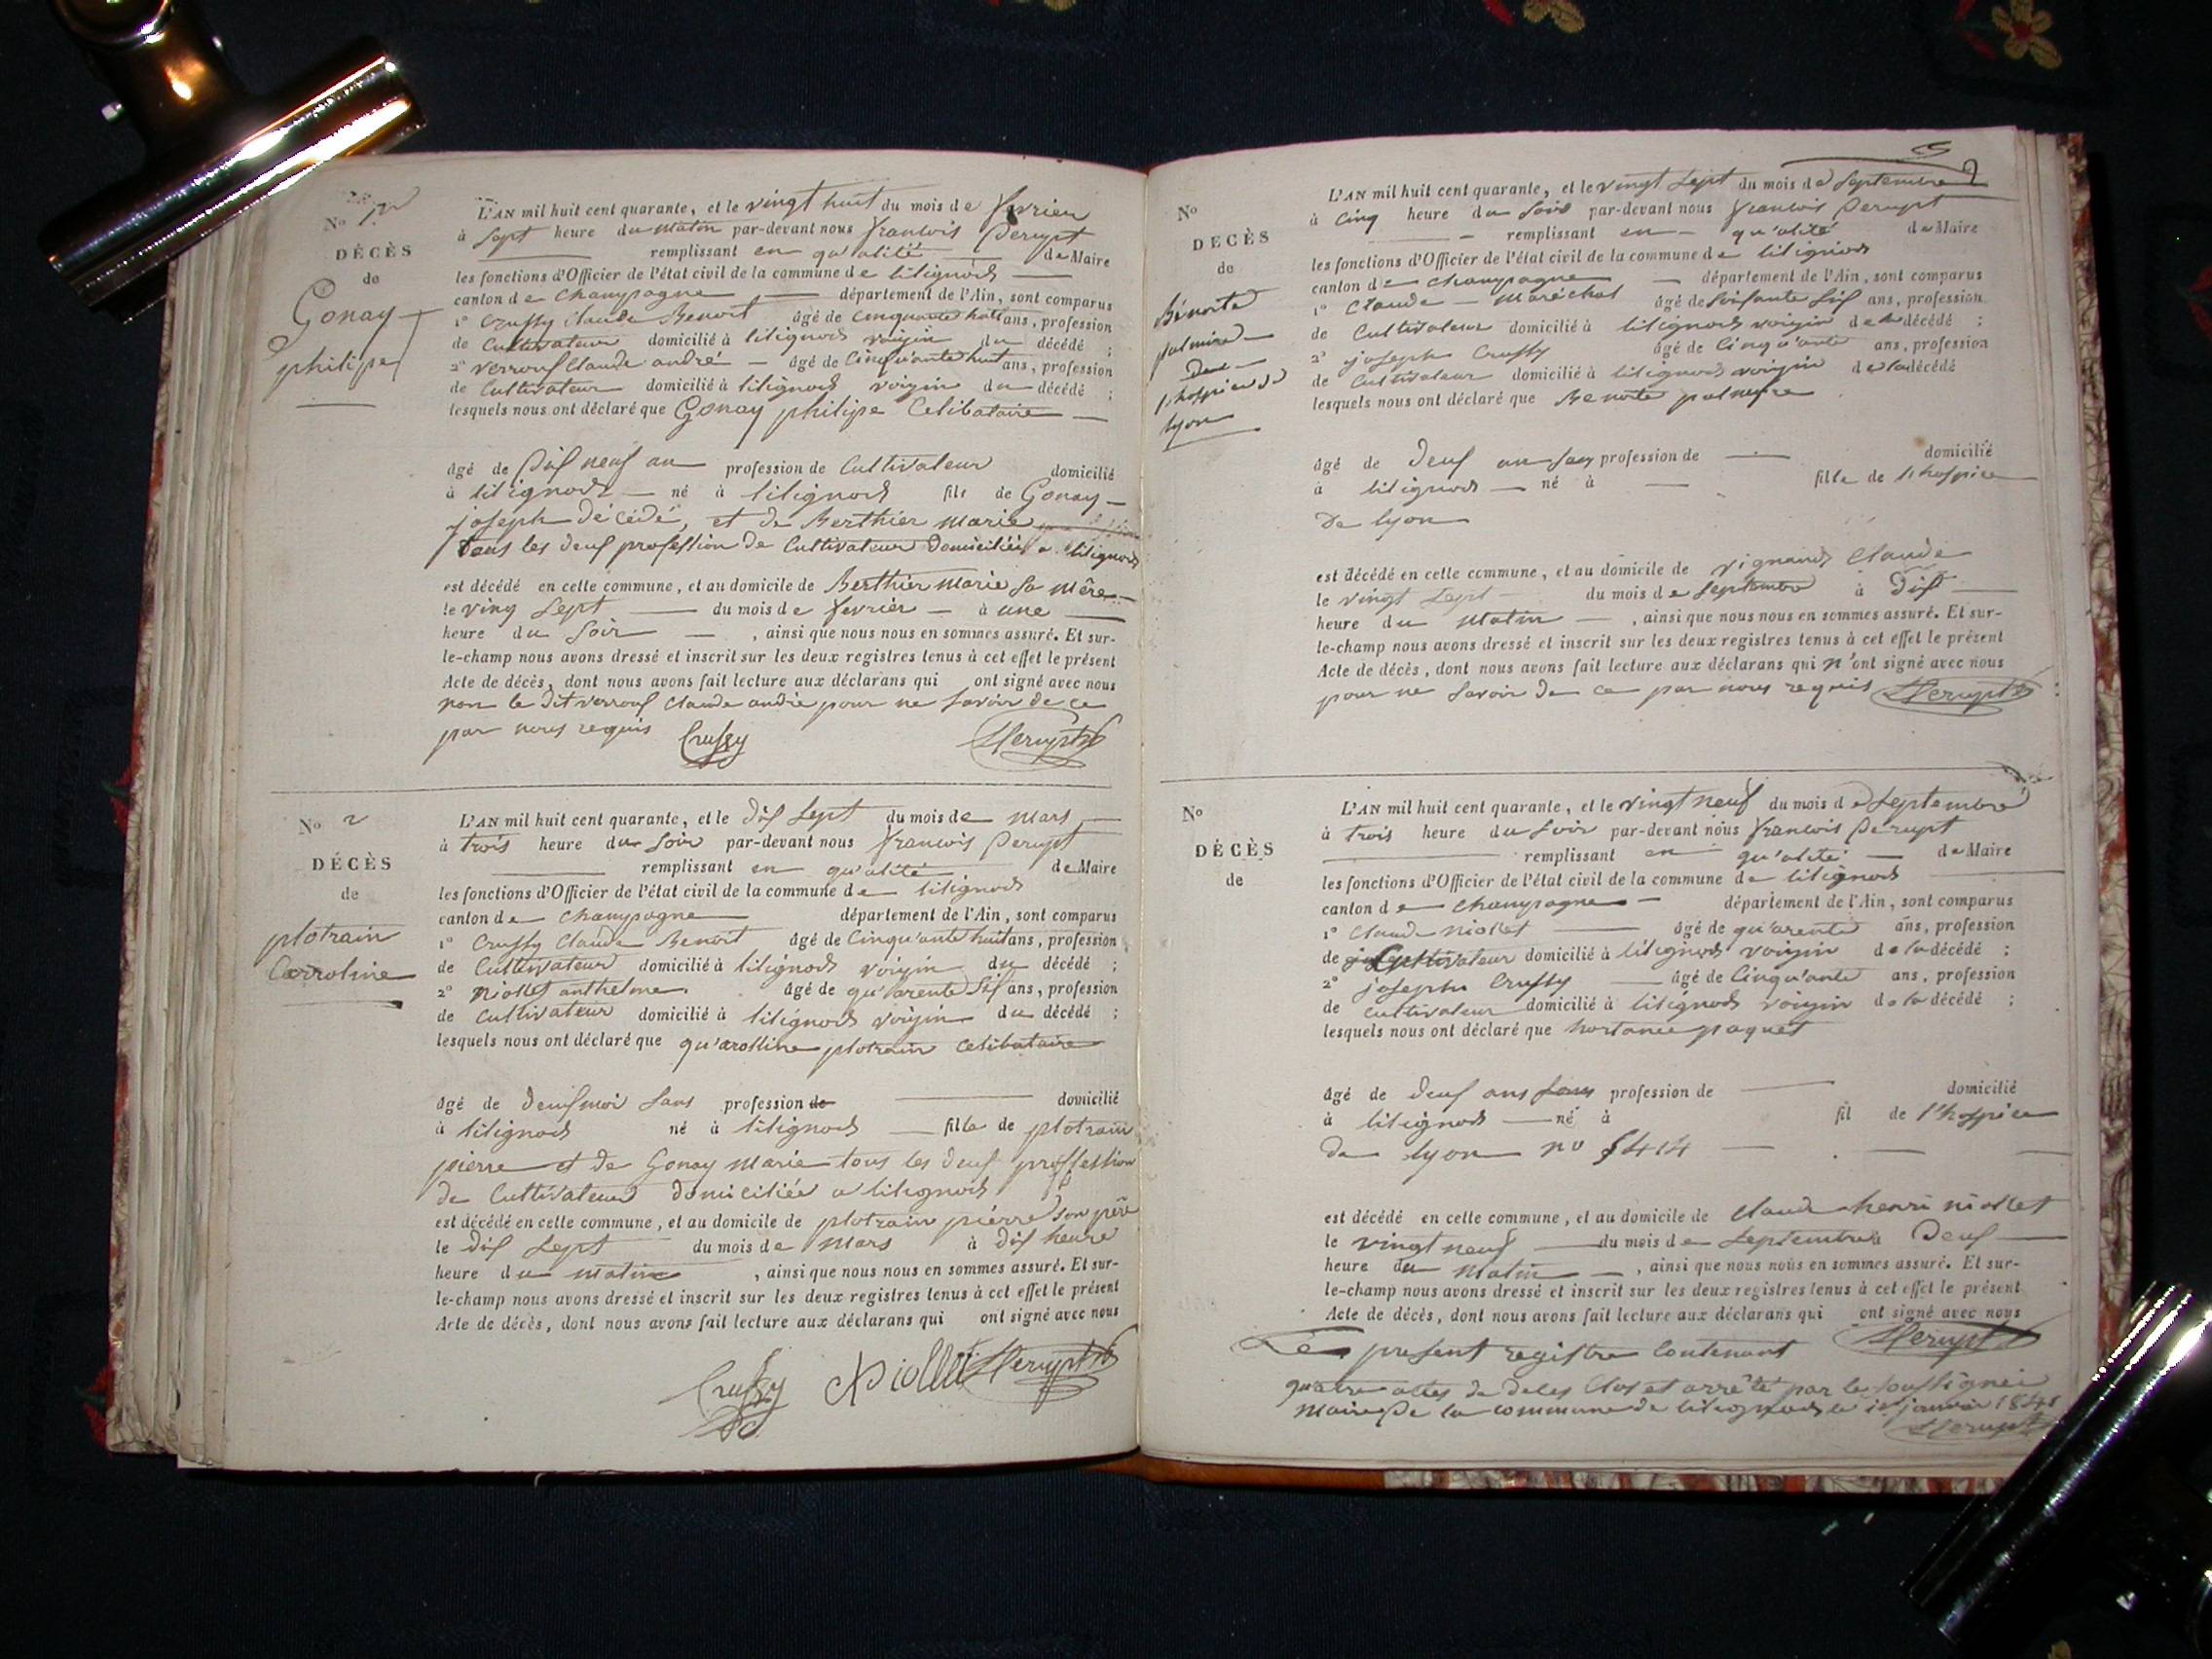 No 1er
DÉCÈS
de
Gonay
philipe
L'AN mil huit cent quarante, et le vingt huit du mois de fevrier
à sept heure du matin par-devant nous francois Perupt
remplissant en qu'alité de Maire
les fonctions d'Officier de l'état civil de la commune de lilignods
canton de Champagne département de l'Ain, sont comparus
1° Crussy Claude Benoit âgé de cinquante huit ans, profession
de Cultivateur domicilié à lilignods voizin du décédé ;
2° verrouf Claude andré âgé de Cinqu'ante huit ans, profession
de Cultivateur domicilié à lilignods voizin du décédé ;
lesquels nous ont déclaré que Gonay philipe Celibataire
âgé de Dif neuf an profession de Cultivateur domicilié
à lilignods né à lilignods fils de Gonay
joseph décédé, et de Berthier Marie
tous les deuf profession de Cultivateur Domiciliés a lilignods
est décédé en cette commune, et au domicile de Berthier Marie sa mêre
le ving sept du mois de fevrier à une
heure du soir , ainsi que nous nous en sommes assuré. Et sur-
le-champ nous avons dressé et inscrit sur les deux registres tenus à cet effet le présent
Acte de décès, dont nous avons fait lecture aux déclarans qui ont signé avec nous
non le dit verrouf Claude andré pour ne savoir de ce
par nous requis Crussy Perupt
No 2
DÉCÈS
de
plotrain
Carroline
L'AN mil huit cent quarante, et le dif sept du mois de mars
à trois heure du soir par-devant nous francois Perupt
remplissant en qu'alité de Maire
les fonctions d'Officier de l'état civil de la commune de lilignods
canton de Champagne département de l'Ain, sont comparus
1° Crussy Claude Benoit âgé de Cinqu'ante huit ans, profession
de Cultivateur domicilié à lilignods voizin du décédé ;
2° Niollet anthelme âgé de qu'arente sif ans, profession
de Cultivateur domicilié à lilignods voizin du décédé ;
lesquels nous ont déclaré que qu'arolline plotrain celibataire
âgé de deuf moi sans profession de domicilié
à lilignods né à lilignods fille de plotrain
pierre et de Gonay Marie tous les deuf proffession
de Cultivateur domiciliée a lilignods
est décédé en cette commune, et au domicile de plotrain piérre son pére
le dif sept du mois de Mars à dif heure
heure du matin , ainsi que nous nous en sommes assuré. Et sur-
le-champ nous avons dressé et inscrit sur les deux registres tenus à cet effet le présent
Acte de décès, dont nous avons fait lecture aux déclarans qui ont signé avec nous
Crussy Niollet Perupt
No
DÉCÈS
de
Bénoite
palmire
De
l'hospice de
lyon
L'AN mil huit cent quarante, et le vingt sept du mois de septembre
à cinq heure du soir par-devant nous francois Perupt
remplissant en qu'alité de Maire
les fonctions d'Officier de l'état civil de la commune de lilignods
canton de Champagne département de l'Ain, sont comparus
1° Claude Maréchal âgé de soifante sif ans, profession
de Cultivateur domicilié à lilignods voizin de la décédé ;
2° joseph Crussy âgé de Cinqu'ante ans, profession
de Cultivateur domicilié à lilignods voizin de la décédé
lesquels nous ont déclaré que Benoite palmire
âgé de deuf an sans profession de domicilié
à lilignods né à fille de l'hospice
De lyon
est décédé en cette commune, et au domicile de vignand Claude
le vingt sept du mois de septembre à Dif
heure du Matin , ainsi que nous nous en sommes assuré. Et sur-
le-champ nous avons dressé et inscrit sur les deux registres tenus à cet effet le présent
Acte de décès, dont nous avons fait lecture aux déclarans qui n'ont signé avec nous
pour ne savoir de ce par nous requis Perupt
No
DÉCÈS
de
L'AN mil huit cent quarante, et le vingt neuf du mois de septembre
à trois heure du soir par-devant nous francois Perupt
remplissant en qu'alité de Maire
les fonctions d'Officier de l'état civil de la commune de lilignods
canton de Champagne département de l'Ain, sont comparus
1° Claude Niollet âgé de qu'arente ans, profession
de Cultivateur domicilié à lilignods voizin de la décédé ;
2° joseph Crussy âgé de Cinqu'ante ans, profession
de cultivateur domicilié à lilignods voizin de la décédé ;
lesquels nous ont déclaré que hortance paquet
âgé de deuf ans sans profession de domicilié
à lilignods né à fil de l'hospice
de lyon no 5414
est décédé en cette commune, et au domicile de Claude henri niollet
le vingt neuf du mois de septembre à Deuf
heure du Matin , ainsi que nous nous en sommes assuré. Et sur-
le-champ nous avons dressé et inscrit sur les deux registres tenus à cet effet le présent
Acte de décès, dont nous avons fait lecture aux déclarans qui ont signé avec nous
Le present registre Contenant Perupt
quatre actes de deces Clos et arrêté par le soussigné
Maire De la commune de lilignods le 1er janvier 1841
Perupt